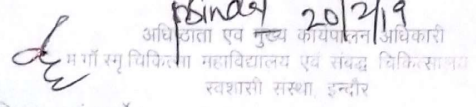 20/2/19
अधिष्ठाता एवं मुख्य कार्यपालन अधिकारी
म गाँ स्मृ चिकित्सा महाविद्यालय एवं संबद्ध चिकित्सालय
स्वशासी संस्था, इन्दौर